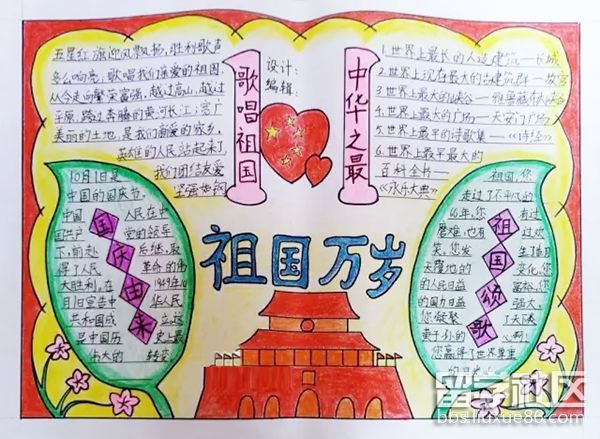 五星红旗迎风飘扬,胜利歌声
多么响亮,歌唱我们亲爱的祖国,
从今走向繁荣富强,越过高山,越过
平原,跨过奔腾的黄河长江;宽广
美丽的土地,是我们亲爱的家乡,
英雄的人民站起来了
我们团结友爱
坚强如钢
歌唱祖国
设计:
编辑:
中华之最
1.世界上最长的人造建筑——长城
2.世界上现存最大的古建筑群——故宫
3.世界上最大的峡谷——雅鲁藏布大峡谷
4.世界上最大的广场——天安门广场
5.世界上最早的诗歌集——《诗经》
6.世界上最早最大的
百科全书——
《永乐大典》
祖国万岁
10月1日是
中国的国庆节,
中国 人民在中
国共产 党的领导
下,前赴 后继,取
得了人民 革命的伟
大胜利,在 1949年10
月1日宣告中 华人民
共和国成 立,这
是中国历 史上最
伟大的 转变
国庆由来
祖国,您
走过了不平凡的
66年,您 有过
磨难,也有 过欢
笑,您发 生了日月
天隆地的 变化,您
的人民日益 富裕,您
的国力日益 强大
您凝聚 了天下
炎子孙的 心啊!
您赢得了世界尊重
的目光
祖国颂歌
留学社区
bbs.liuxue86.com